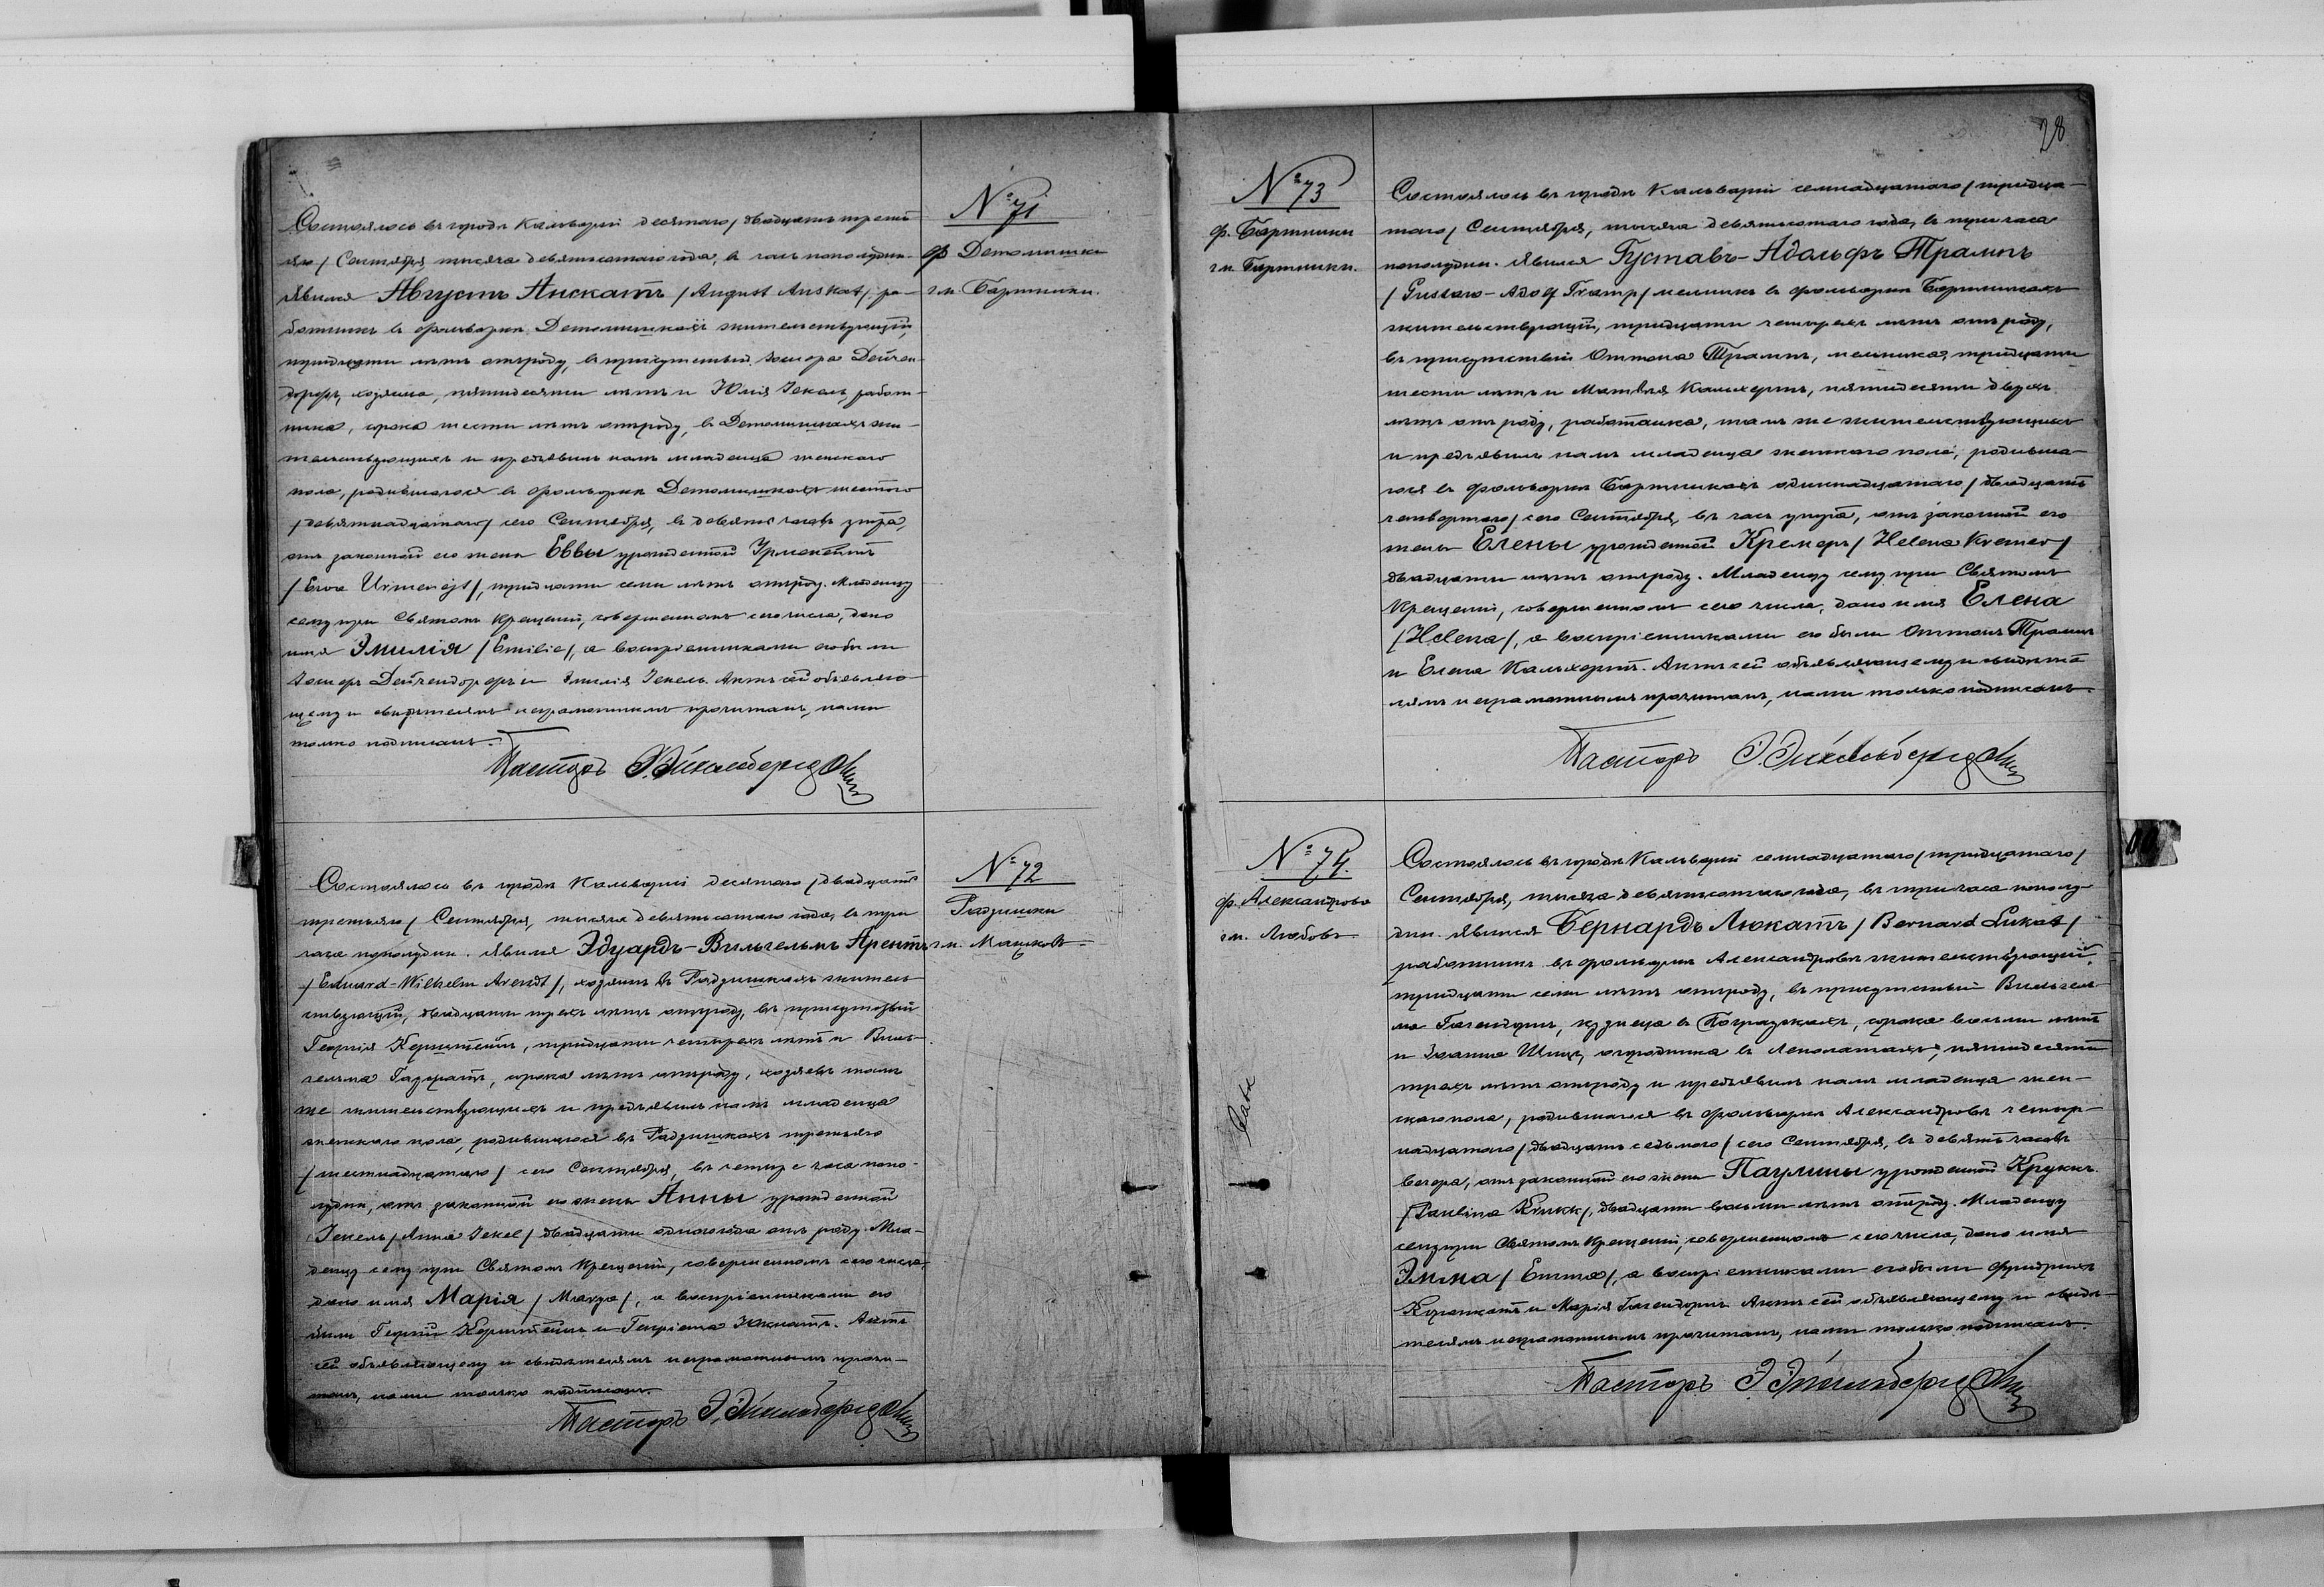 № 71
ф. Детомишки
гм. Бартники.
Состоялось въ городѣ Кальваріи десятаго / двадцать треть
яго / Сентября, тысяча девятьсотаго года, въ часъ пополудни.
Явился Августъ Анскатъ / August Anskat /, ра-
ботникъ въ фольваркѣ Детомишкахъ жительствующій,
тридцати лѣтъ отъ роду, въ присутствіи Дейчен-
дорфъ, хозяина, пятидесяти лѣтъ и Юлія Іекель, работ-
ника, сорока шести лѣтъ отъ роду, въ Детомишкахъ жи-
тельствующихъ и предъявилъ намъ младенца женскаго
пола, родившагося въ фольваркѣ Детомишкахъ шестого
/ девятнадцатаго / сего Сентября, въ девять часовъ утра,
отъ законной его жены Еввы урожденной Урменейтъ
/ Ewa Urmenejt /, тридцати семи лѣтъ отъ роду. Младенцу
сему при Святомъ Крещеніи, совершенномъ сего числа, дано
имя Эмилія / Emilie /, а воспріемниками его были
Дейчендорфъ и Эмилія Іекель. Актъ сей объявляю-
щему и свидѣтелямъ неграмотнымъ прочитанъ, нами
только подписанъ.
Пасторъ
№ 72
Радзишки
гм. Михайловъ
Состоялось въ городѣ Кальваріи десятаго / двадцать
третьяго / Сентября, тысяча девятьсотаго года, въ три
часа пополудни. Явился Эдуардъ-Вильгельмъ Арентъ
/ Eduard-Wilhelm Arendt /, хозяинъ въ Радзишкахъ житель-
ствующій, двадцати трехъ лѣтъ отъ роду, въ присутствіи
Георгія Керштейнъ, тридцати четырехъ лѣтъ и Виль-
гельма сорока лѣтъ отъ роду, хозяевъ тамъ
же жительствующихъ и предъявилъ намъ младенца
женскаго пола, родившагося въ Радзишкахъ третьяго
/ шестнадцатаго / сего Сентября, въ четыре часа попо-
лудни, отъ законной его жены Анны урожденной
Іекель / Anna Jekel / двадцати одного года отъ роду. Мла-
денцу сему при Святомъ Крещеніи, совершенномъ сего числа,
дано имя Марія / Marya /, а воспріемниками его
были Георгій Керштейнъ и Актъ
сей объявляющему и свидѣтелямъ неграмотнымъ прочи-
танъ, нами только подписанъ.
Пасторъ
28
№ 73
ф. Бартники
гм. Бартники.
Состоялось въ городѣ Кальваріи семнадцатаго / тридца-
таго / Сентября, тысяча девятьсотаго года, въ три часа
пополудни. Явился Густавъ-Адольфъ Трампъ
/ Gustaw-Adolf Tramp / мельникъ въ фольваркѣ Бартникахъ
жительствующій, тридцати четырехъ лѣтъ отъ роду,
въ присутствіи Оттона Трампъ, мельника, тридцати
шести лѣтъ и Матвѣя Кальхертъ, пятидесяти двухъ
лѣтъ отъ роду, работника, тамъ же жительствующихъ
и предъявилъ намъ младенца женскаго пола, родивша-
гося въ фольваркѣ Бартникахъ одиннадцатаго / двадцать
четвертаго / сего Сентября, въ часъ утра, отъ законной его
жены Елены урожденной Кремеръ / Helena Kremer /
двадцати лѣтъ отъ роду. Младенцу сему при Святомъ
Крещеніи, совершенномъ сего числа, дано имя Елена
/ Helena /, а воспріемниками его были Оттонъ Трампъ
и Елена Кальхертъ. Актъ сей объявляющему и свидѣте-
лямъ неграмотнымъ прочитанъ, нами только подписанъ.
Пасторъ
№ 74.
ф. Александрово
гм. Любовъ
Состоялось въ городѣ Кальваріи семнадцатаго / тридцатаго /
Сентября, тысяча девятьсотаго года, въ три часа пополу-
дни. Явился Бернардъ Люкатъ / Bernard Lukat /
работникъ въ фольваркѣ Александровѣ жительствующій,
тридцати семи лѣтъ отъ роду, въ присутствіи Вильгель-
ма кузнеца въ сорока восьми лѣтъ
и Іоанна Шицъ, огородника въ пятидесяти
трехъ лѣтъ отъ роду и предъявилъ намъ младенца жен-
скаго пола, родившагося въ фольваркѣ Александровѣ четыр-
надцатаго / двадцать седьмого / сего Сентября, въ девять часовъ
вечера, отъ законной его жены Паулины урожденной Круккъ
/ Paulina Krukk /, двадцати восьми лѣтъ отъ роду. Младенцу
сему при Святомъ Крещеніи, совершенномъ сего числа, дано имя
Эмма / Emma /, а воспріемниками его были Фридрихъ
и Марія Актъ сей объявляющему и свидѣ-
телямъ неграмотнымъ прочитанъ, нами только подписанъ.
Пасторъ